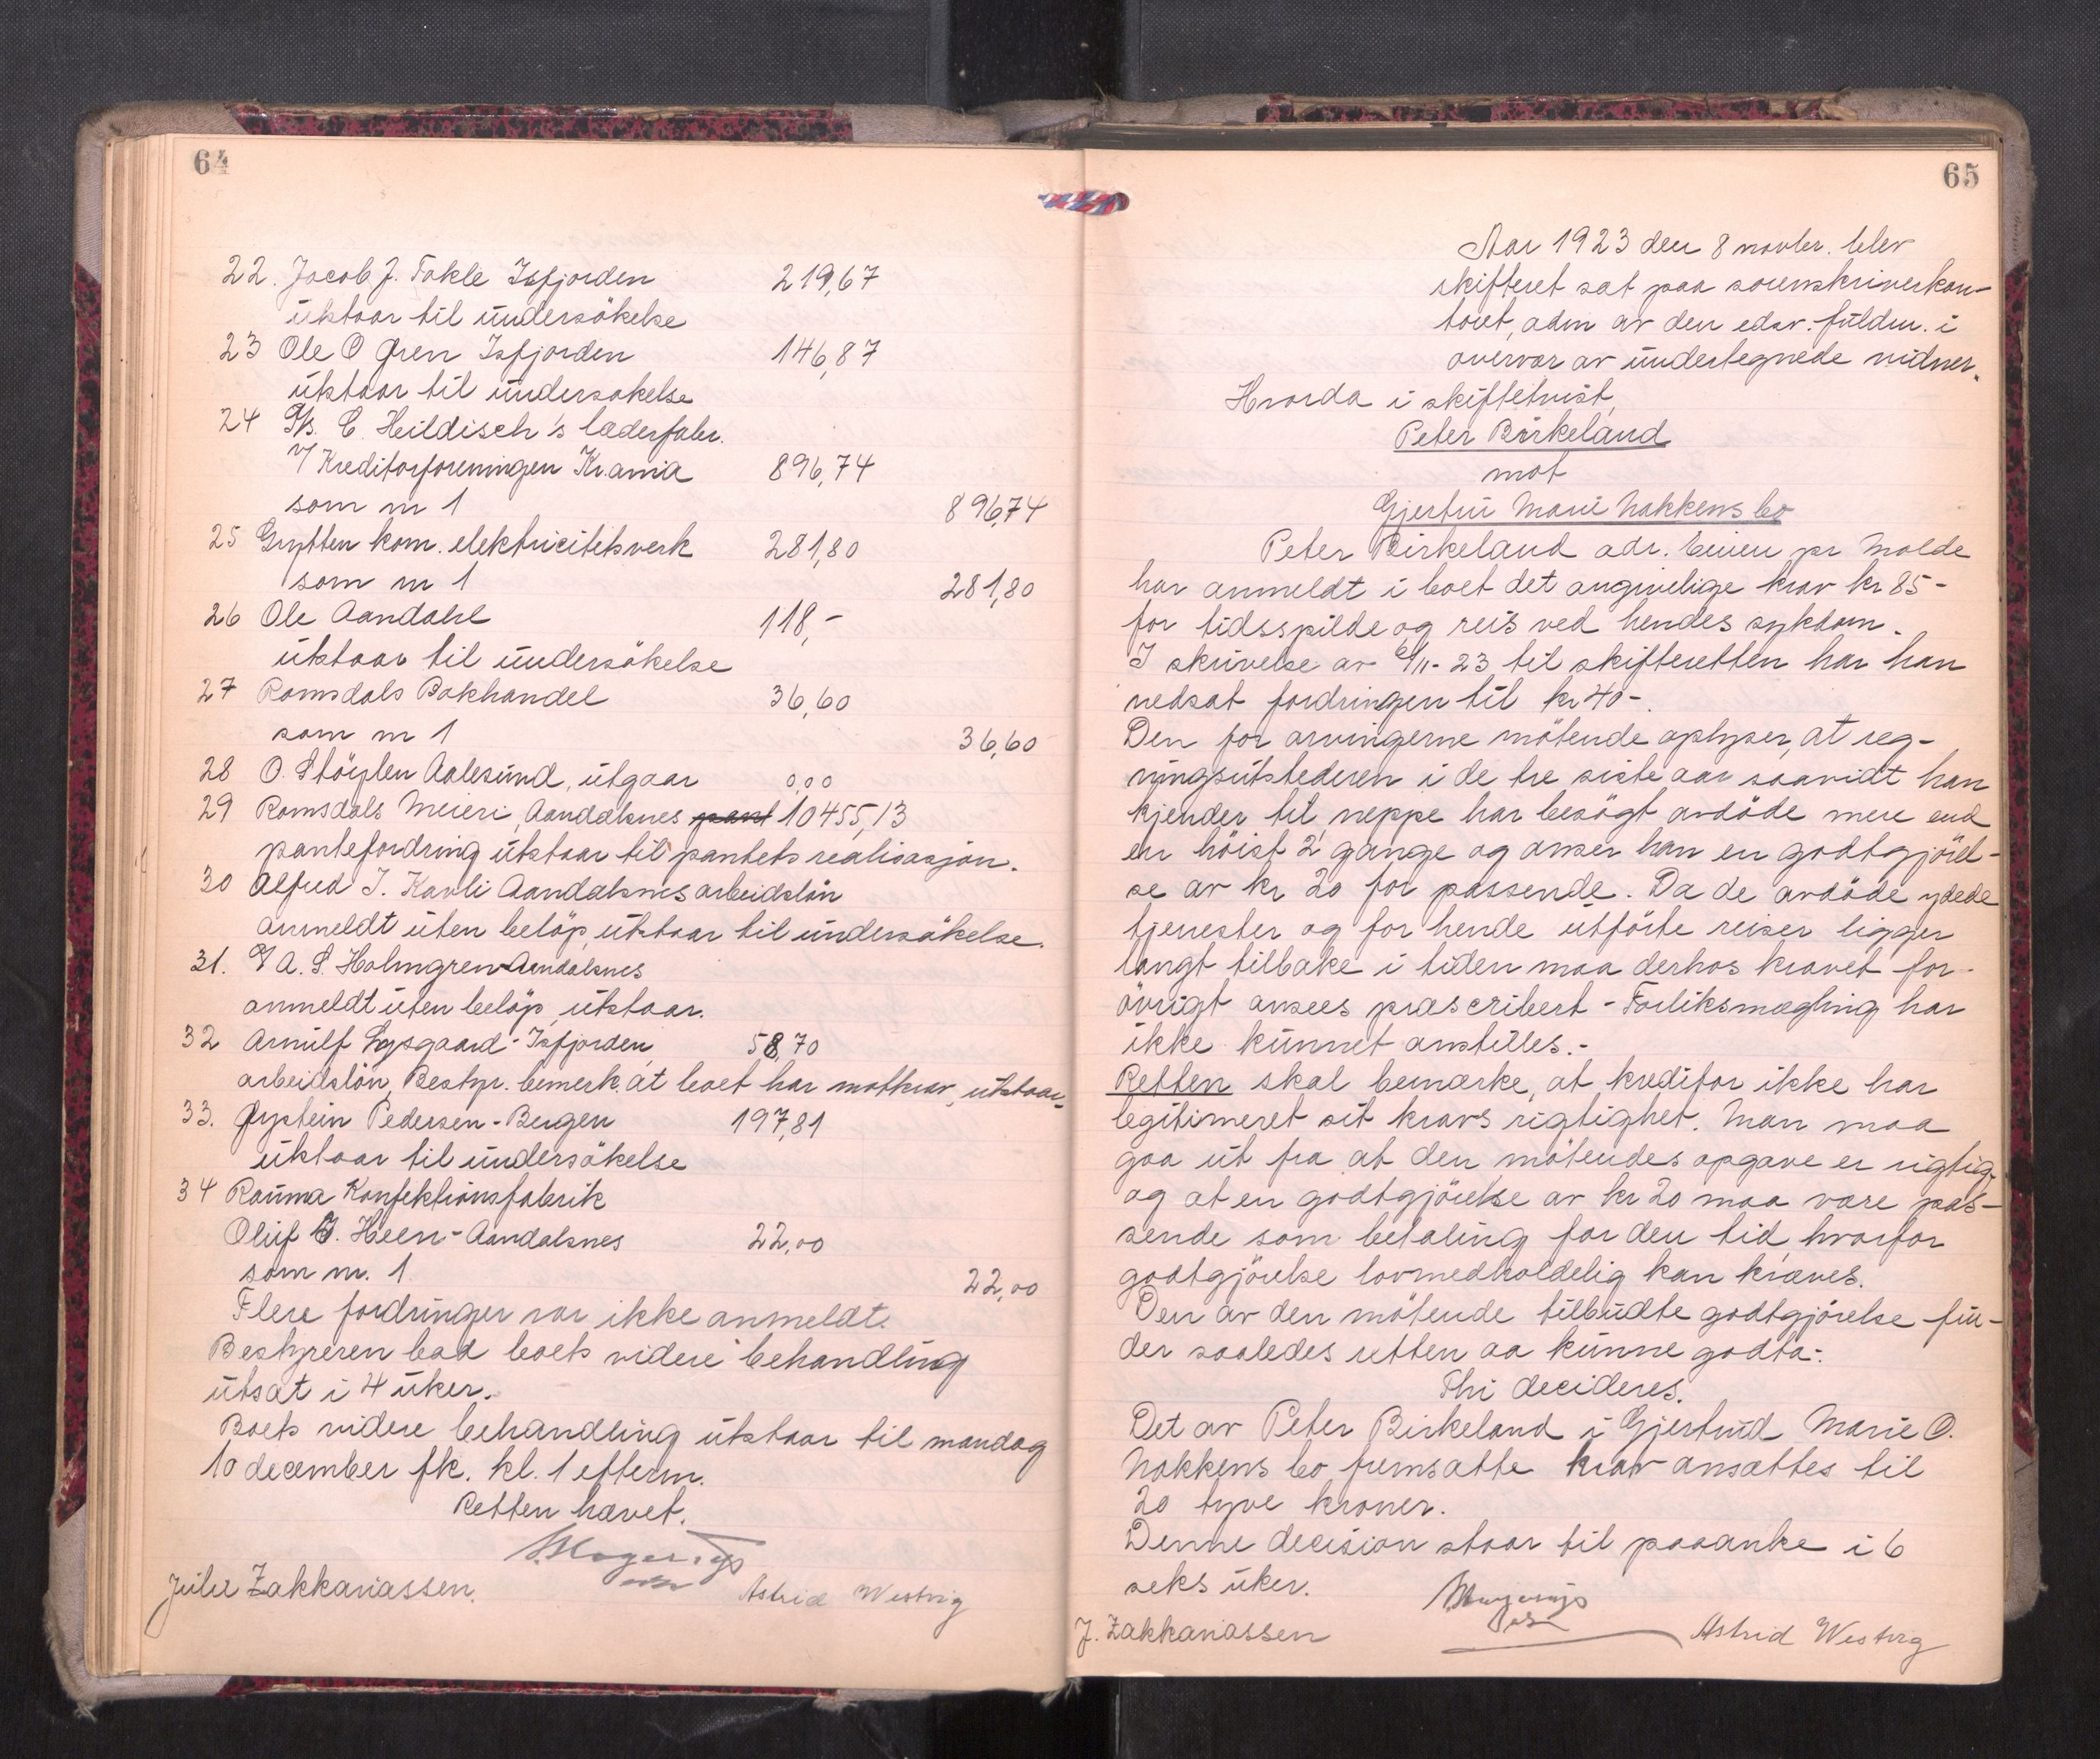 64
22. Jacob J. Tokle Isfjorden 219,67
utstaar til undersökelse
23 Ole O Gren Isfjorden 146,87
utstaar til undersøkelse
24 C. Heildisch's læderfabr.
v/ Kreditorforeningen Kr.ania 896,74
som nr 1 896,74
25 Grytten kom. elektricitetsverk 281,80
som nr 1 281,80
26 Ole Aandahl 118,-
utstaar til undersökelse
27 Romsdals Bokhandel 36,60
som nr 1 36,60
28 O. Stöylen Aalesund, utgaar 0,00
29 Romsdals Meieri, Aandalsnes pant 10455,13
pantefordring utstaar til pantets realisasjon.
30 Alfred I. Kavli Aandalsnes arbeidslön
anmeldt uten belöp, utstaar til undersökelse.
31. A. S. Holmgren Aandalsnes
anmeldt uten belöp, utstaar.
32 Arnulf Lysgaard - Isfjorden, 58,70
arbeidslön, Bestyr. bemerk. at boet har motkrav, utstaar.
33. Øystein Pedersen - Bergen 197,81
utstaar til undersökelse
34 Rauma Konfektionsfabrik
Oluf J. Heen - Aandalsnes 22,00
som nr. 1 22,00
Flere fordringer var ikke anmeldt.
Bestyreren bad boets videre behandling
utsat i 4 uker.
Boets videre behandling utstaar til mandag
10 december fk. kl. 1 efterm.
Retten hævet.
Zakkariassen. Astrid Westvig
65
Aar 1923 den 8 novbr. blev
skifteret sat paa sorenskriverkon-
toret, adm av den edsv. fuldm. i
overvær av undertegnede vidner.
Hvorda i skiftetvist,
Peter Birkeland
mot
Gjertru Marie Nakkens bo
Peter Birkeland adr. pr Molde
har anmeldt i boet det angivelige krav kr 85-
for tidsspilde og reis ved hendes sykdom.
I skrivelse av 6/11-23 til skifteretten har han
nedsat fordringen til kr 40-.
Den for arvingerne mötende oplyser, at reg-
ningsutstederen i de tre siste aar saavidt han
kjender til, neppe har besögt avdöde mere end
en höist 2 gange og anser han en godtgjörel-
se av kr 20 for passende. Da de avdöde ydede
tjenester og for hende utförte reiser ligger
langt tilbake i tiden maa derhos kravet for-
övrigt ansees præscribert - Forliksmægling har
ikke kunnet anstilles.-
Retten skal bemærke, at kreditor ikke har
legitimeret sit kravs rigtighet. Man maa
gaa ut fra at den mötendes opgave er rigtig,
og at en godtgjörelse av kr 20 maa være pas-
sende som betaling for den tid, hvorfor
godtgjörelse lovmedholdelig kan kræves.
Den av den mötende tilbudte godtgjörelse fin-
der saaledes retten aa kunne godta.-
Thi decideres.
Det av Peter Birkeland i Gjertrud Marie O.
Nakkens bo fremsatte krav ansættes til
20 tyve kroner.
Denne decision staar til paaanke i 6
seks uker.
J. Zakkariassen Astrid Westvig